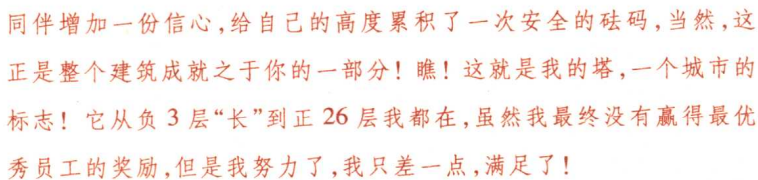 同伴增加一份信心,给自己的高度累积了一次安全的砝码,当然,这
正是整个建筑成就之于你的一部分!瞧!这就是我的塔,一个城市的
标志!它从负3层“长”到正26层我都在,虽然我最终没有赢得最优
秀员工的奖励,但是我努力了,我只差一点,满足了!